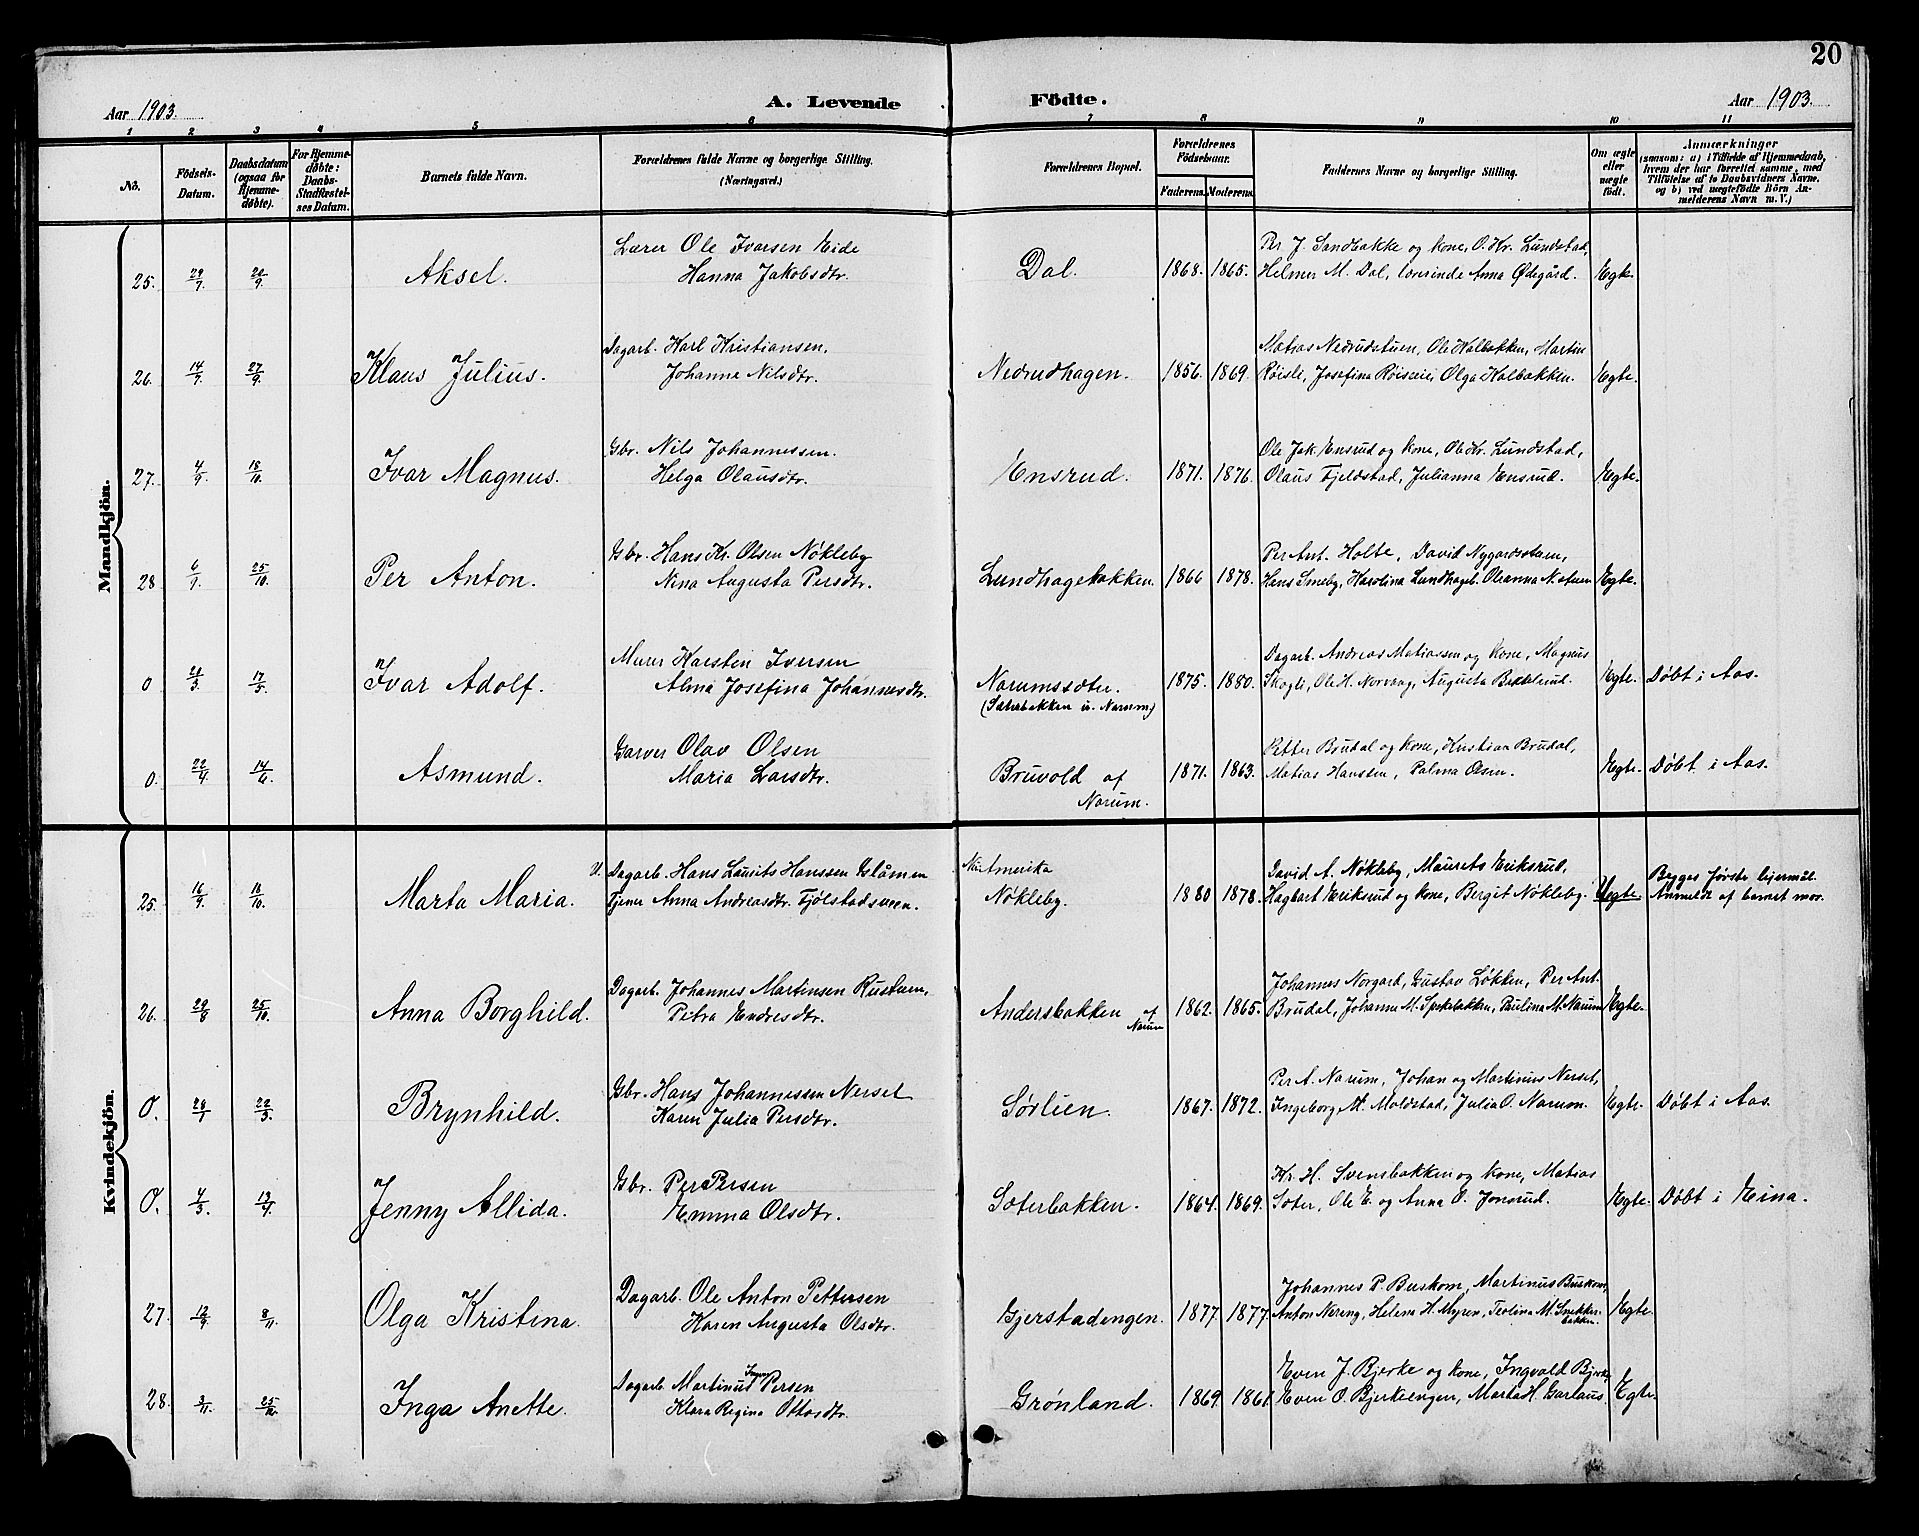 20
Aar 1903. A. Levende Födte. Aar 1903.
1 2 3 4 5 6 7 8 9 10 11
No.
Födsels-Datum.
Daabsdatum (ogsaa for Hjemmedøbte).
For Hjemmedøbte: Daabs-Stadfæstelses Datum.
Barnets fulde Navn.
Forældrenes fulde Navne og borgerlige Stilling.
(Næringsvei.)
Forældrenes Bopæl.
Forældrenes Födselsaar.
Faderens. Moderens.
Faddernes Navne og borgerlige Stilling.
Om ægte eller uægte födt.
Anmærkninger
(saasom: a) i Tilfælde af Hjemmedaab, hvem der har forrettet samme, med Tilföielse af to Daabsvidners Navne, og b) ved uægtefödte Börn Anmelderens Navn m. V.)
Mandkjön.
25. 29/7 20/9 Aksel. Lærer Ole Ivarsen Eide
Hanna Jakobsdtr. Dal. 1868. 1865. Per J. Sandbakke og kone, O. Kr. Lundstad,
Helmer M. Dal, lærerinde Anna Ødegård. Egte.
26. 14/7 27/9 Klaus Julius. Dagarb. Karl Kristiansen.
Johanne Nilsdtr. Nedrudhagen. 1856. 1869. Matias Nedrudstuen, Ole Halbakken, Martin
Røisli, Josefina Røiseie, Olga Halbakken. Egte.
27. 4/9 18/10 Ivar Magnus. Gbr. Nils Johannessen.
Helga Olausdtr. Ensrud. 1871. 1876. Ole Jak. Ensrud og kone, Ole Kr. Lundstad,
Olaus Fjeldstad, Julianna Ensrud. Egte.
28 25/10 Per Anton. Gbr. Hans Kr. Olsen Nøkleby
Nina Augusta Persdtr. Lundhagebakken. 1866 1878. Per Ant. Holte, David Nygardsstuen,
Hans Smeby, Karolina Lundhageb. Oleanna N.stuen Egte.
0 21/3 17/5 Ivar Adolf. Murer Karsten Iversen
Alma Josefina Johannesdtr. Narumssæter.
(Sæterbakken u. Narum) 1875. 1880. Dagarb. Andreas Matiassen og kone, Magnus
Skogli, Ole H. Norvang, Augusta Bækkelund. Egte. Døbt i Aas.
0. 22/4 14/6 Asmund. Garver Olav Olsen
Maria Larsdtr. Bruvold af
Narum. 1871. 1863. Petter Brudal og kone, Kristian Brudal,
Matias Hanssen, Palma Olsen. Egte. Døbt i Aas.
Kvindekjön.
25. 16/9 18/10 Marta Maria. U. Dagarb. Hans Lauits Hanssen
Tjener Anna Andreasdtr. Fjølstadsveen. Amerika
Nøkleby. 1880 1878. David A. Nøkleby, Maurets Eriksrud,
Hagbart Eriksrud og kone, Bergit Nøkleby. Uegte. Begges første leiermål.
Anmeldt af barnet mor.
26. 29/8 25/10 Anna Borghild. Dagarb. Johannes Martinsen Rustuen,
Petra Endresdtr. Andersbakken af
Narum 1862. 1865. Johannes Norgard, Gustav Løkken, Per Ant.
Brudal, Johanne M. Spikebakken, Paulina M. Narum Egte.
0. 28/1 22/3 Brynhild. Gbr. Hans Johannessen Nerset
Karen Julia Persdtr. Sørlien. 1867. 1872. Per A. Narum, Johan og Martinus Nerset,
Ingeborg M. Moldstad, Julia O. Narum. Egte. Døbt i Aas.
0. 4/3 13/4 Jenny Allida. Gbr. Per Persen
Emma Olsdtr. Soterbakken. 1864. 1869. Kr. H. Svensbakken og kone, Matias
Soter, Ole E. og Anna O. Jonsrud. Egte. Døbt i Eina.
27. 12/9 8/11 Olga Kristina. Dagarb. Ole Anton Pettersen
Karen Augusta Olsdtr. Gjerstadengen. 1877. 1877. Johannes P. Buskom, Martinus Buskom,
Anton Nereng, Helene H. Myren, Teolina M. Snekker-
bakken. Egte.
28. 3/11 25/12 Inga Anette. Dagarb. Martinus Persen
Klara Regine Ottosdtr. Grønland. 1869. 1861. Even J. Bjerke og kone, Ingvald Bjerke,
Even O. Bjerkeengen, Marta H. Garlaus. Egte.